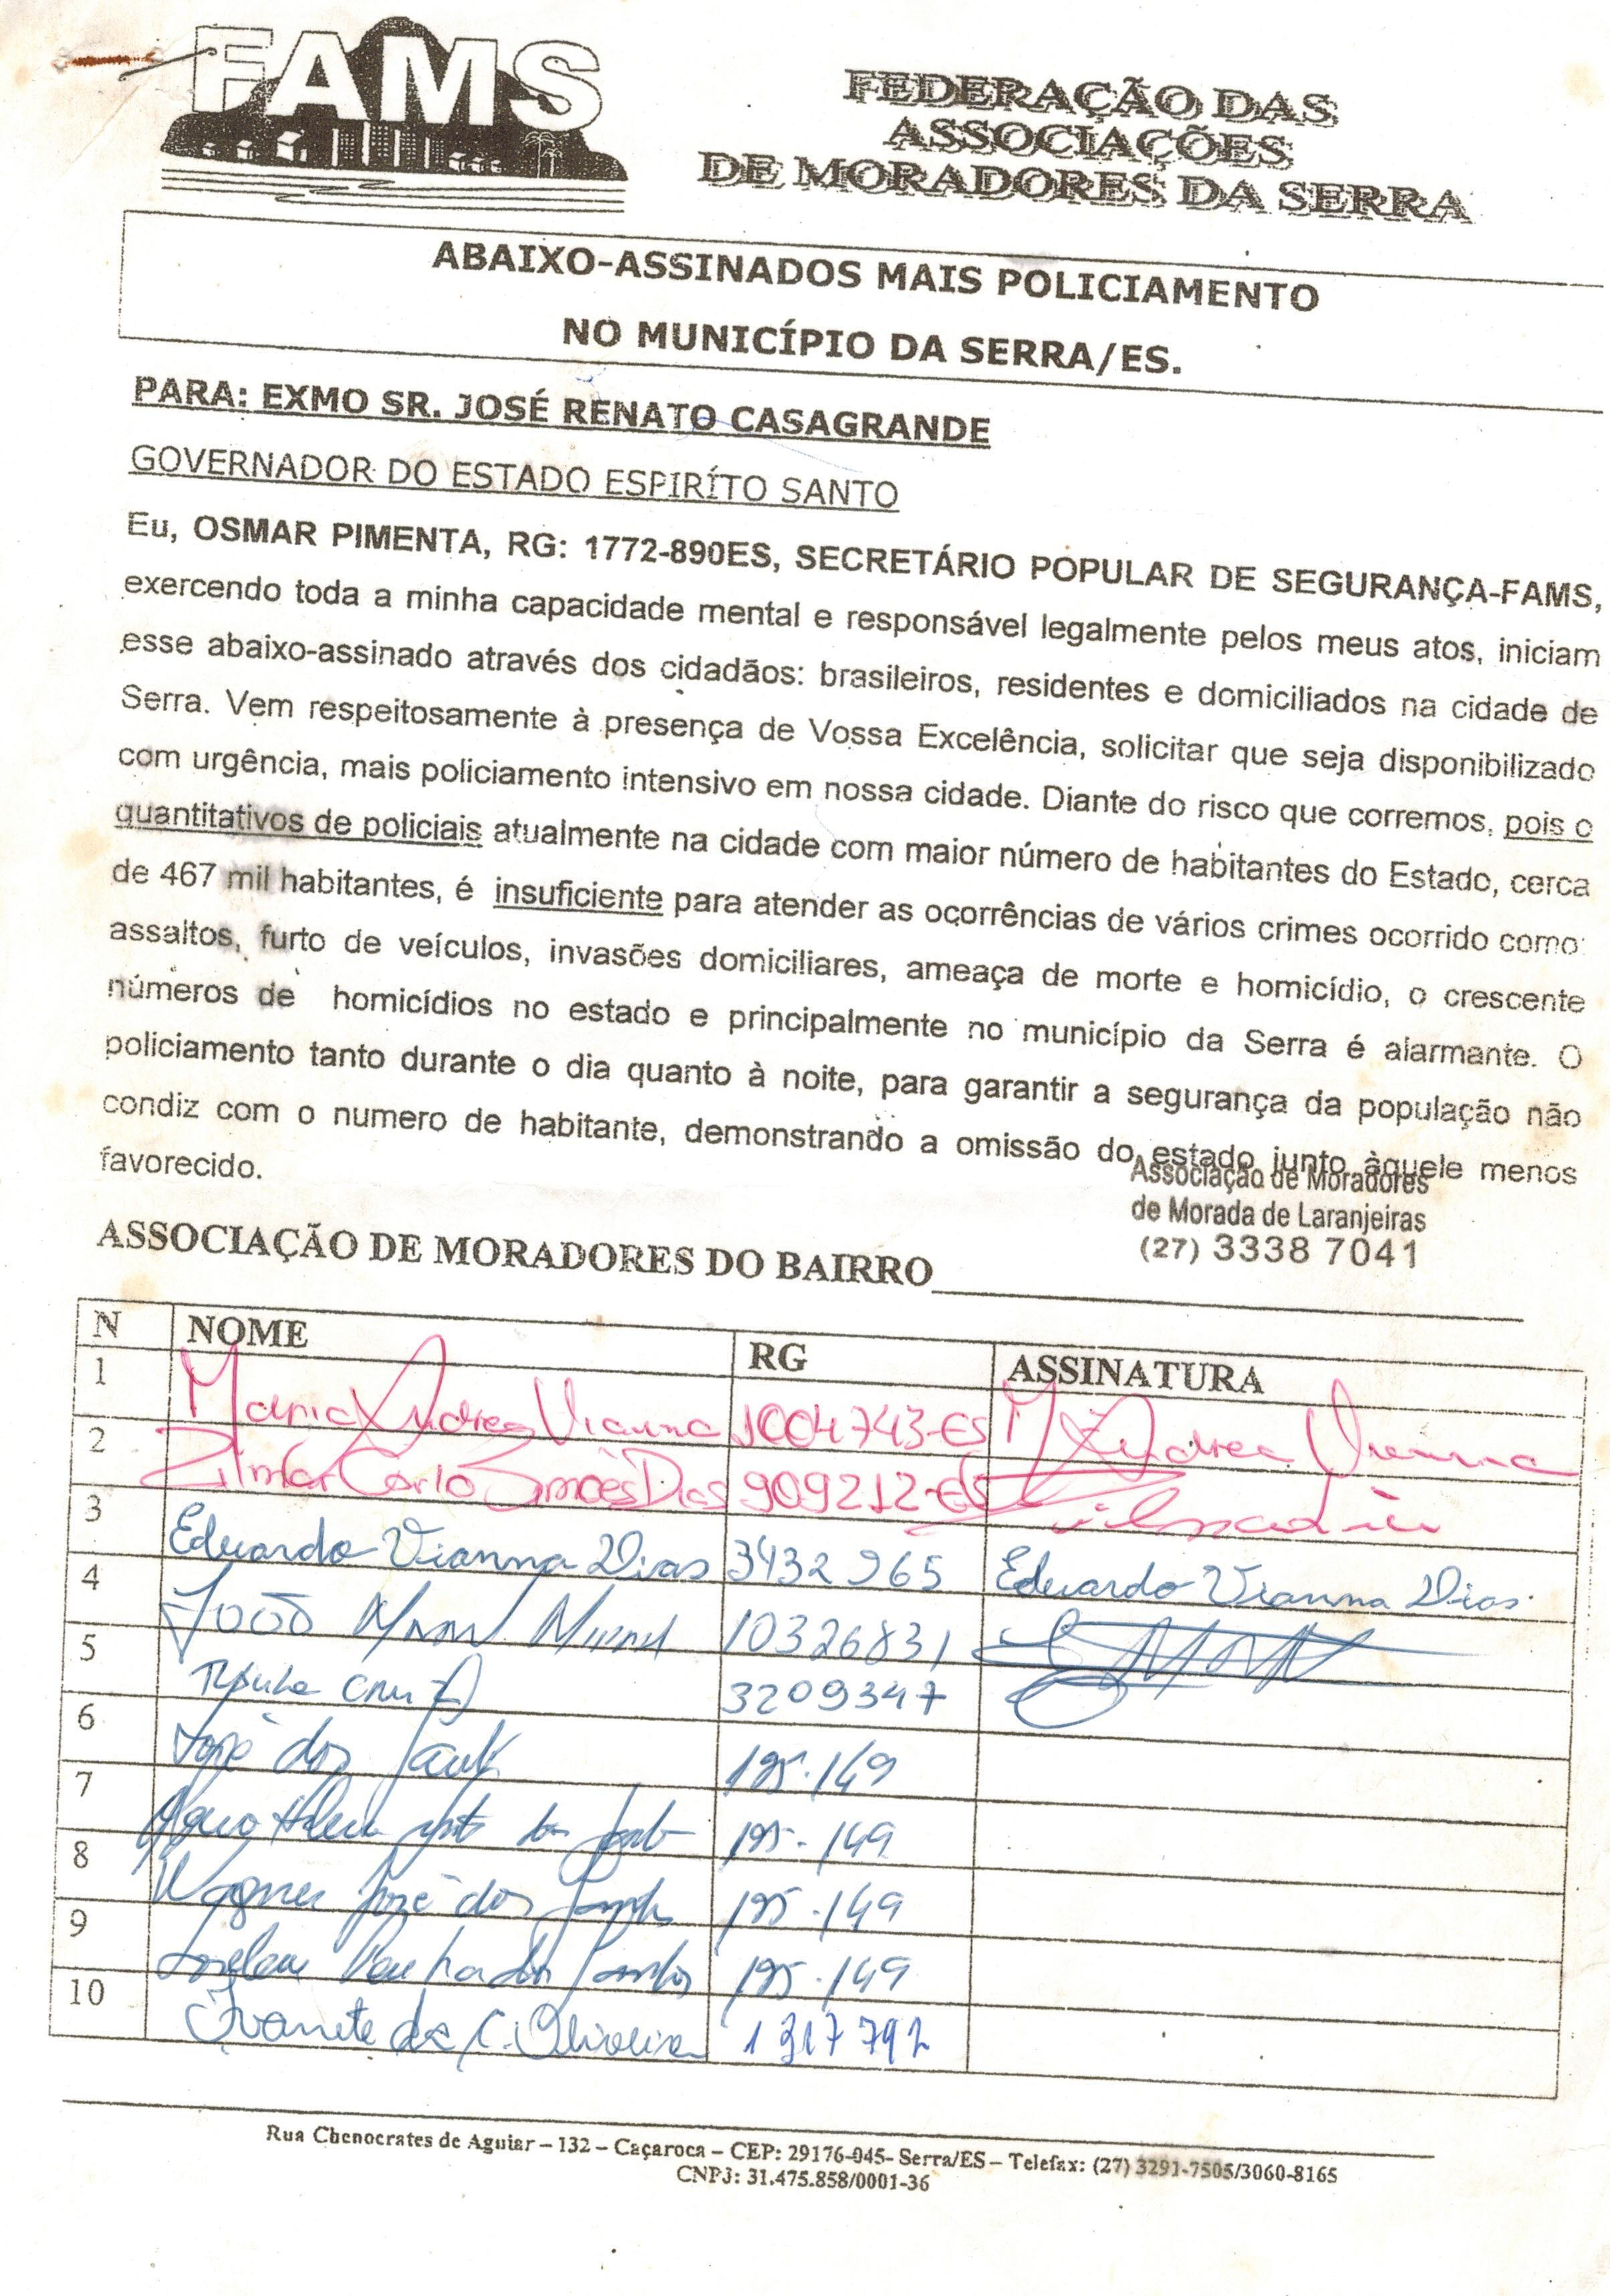 FAMS
FEDERAÇÃO DAS
ASSOCIAÇÕES
DE MORADORES DA SERRA
ABAIXO-ASSINADOS MAIS POLICIAMENTO
NO MUNICÍPIO DA SERRA/ES.
PARA: EXMO SR. JOSÉ RENATO CASAGRANDE
GOVERNADOR DO ESTADO ESPIRÍTO SANTO
Eu, OSMAR PIMENTA, RG: 1772-890ES, SECRETÁRIO POPULAR DE SEGURANÇA-FAMS,
exercendo toda a minha capacidade mental e responsável legalmente pelos meus atos, iniciam
esse abaixo-assinado através dos cidadãos: brasileiros, residentes e domiciliados na cidade de
Serra. Vem respeitosamente à presença de Vossa Excelência, solicitar que seja disponibilizado
com urgência, mais policiamento intensivo em nossa cidade. Diante do risco que corremos, pois o
quantitativos de policiais atualmente na cidade com maior número de habitantes do Estado, cerca
de 467 mil habitantes, é insuficiente para atender as ocorrências de vários crimes ocorrido como:
assaltos, furto de veículos, invasões domiciliares, ameaça de morte e homicídio, o crescente
números de homicídios no estado e principalmente no município da Serra é alarmante. O
policiamento tanto durante o dia quanto à noite, para garantir a segurança da população não
condiz com o numero de habitante, demonstrando a omissão do estado junto àquele menos
favorecido.
Associação de Moradores
de Morada de Laranjeiras
(27) 3338 7041
ASSOCIAÇÃO DE MORADORES DO BAIRRO
N NOME RG ASSINATURA
1 Maria Andrea Vianna 1004743-ES M Andrea Vianna
2 Zilmar Carlo Simões Dias 909212-ES
3 Eduardo Vianna Dias 3432965 Eduardo Vianna Dias
4 João 10326831
5 3209347
6 José dos 195.149
7 195.149
8 Wagner José dos Santos 195.149
9 dos Santos 195.149
10 Ivanete de C. Oliveira 1317792
Rua Chenocrates de Aguiar – 132 – Caçaroca – CEP: 29176-045- Serra/ES – Telefax: (27) 3291-7505/3060-8165
CNPJ: 31.475.858/0001-36